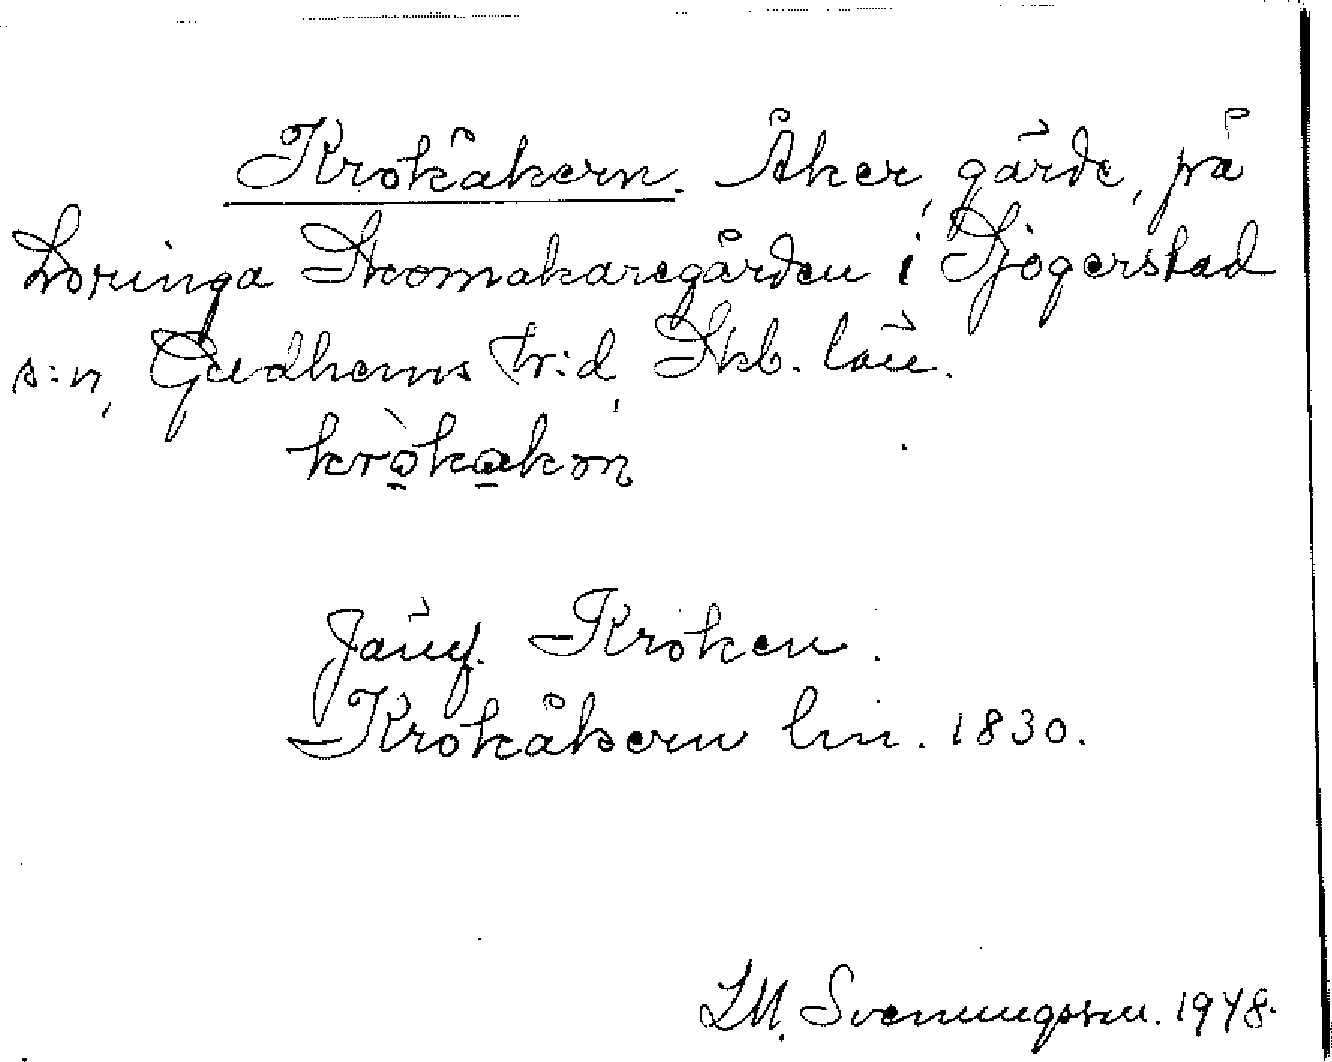 Krokåkern. Åker, gärde, på
Loringa Skomakaregården i Sjogerstad
s:n, Gudhems hr:d, Skb. län.
kròkakơn
Jämf. Kroken.
Krokåkern lm. 1830.
L.M. Svenungsson. 1948.